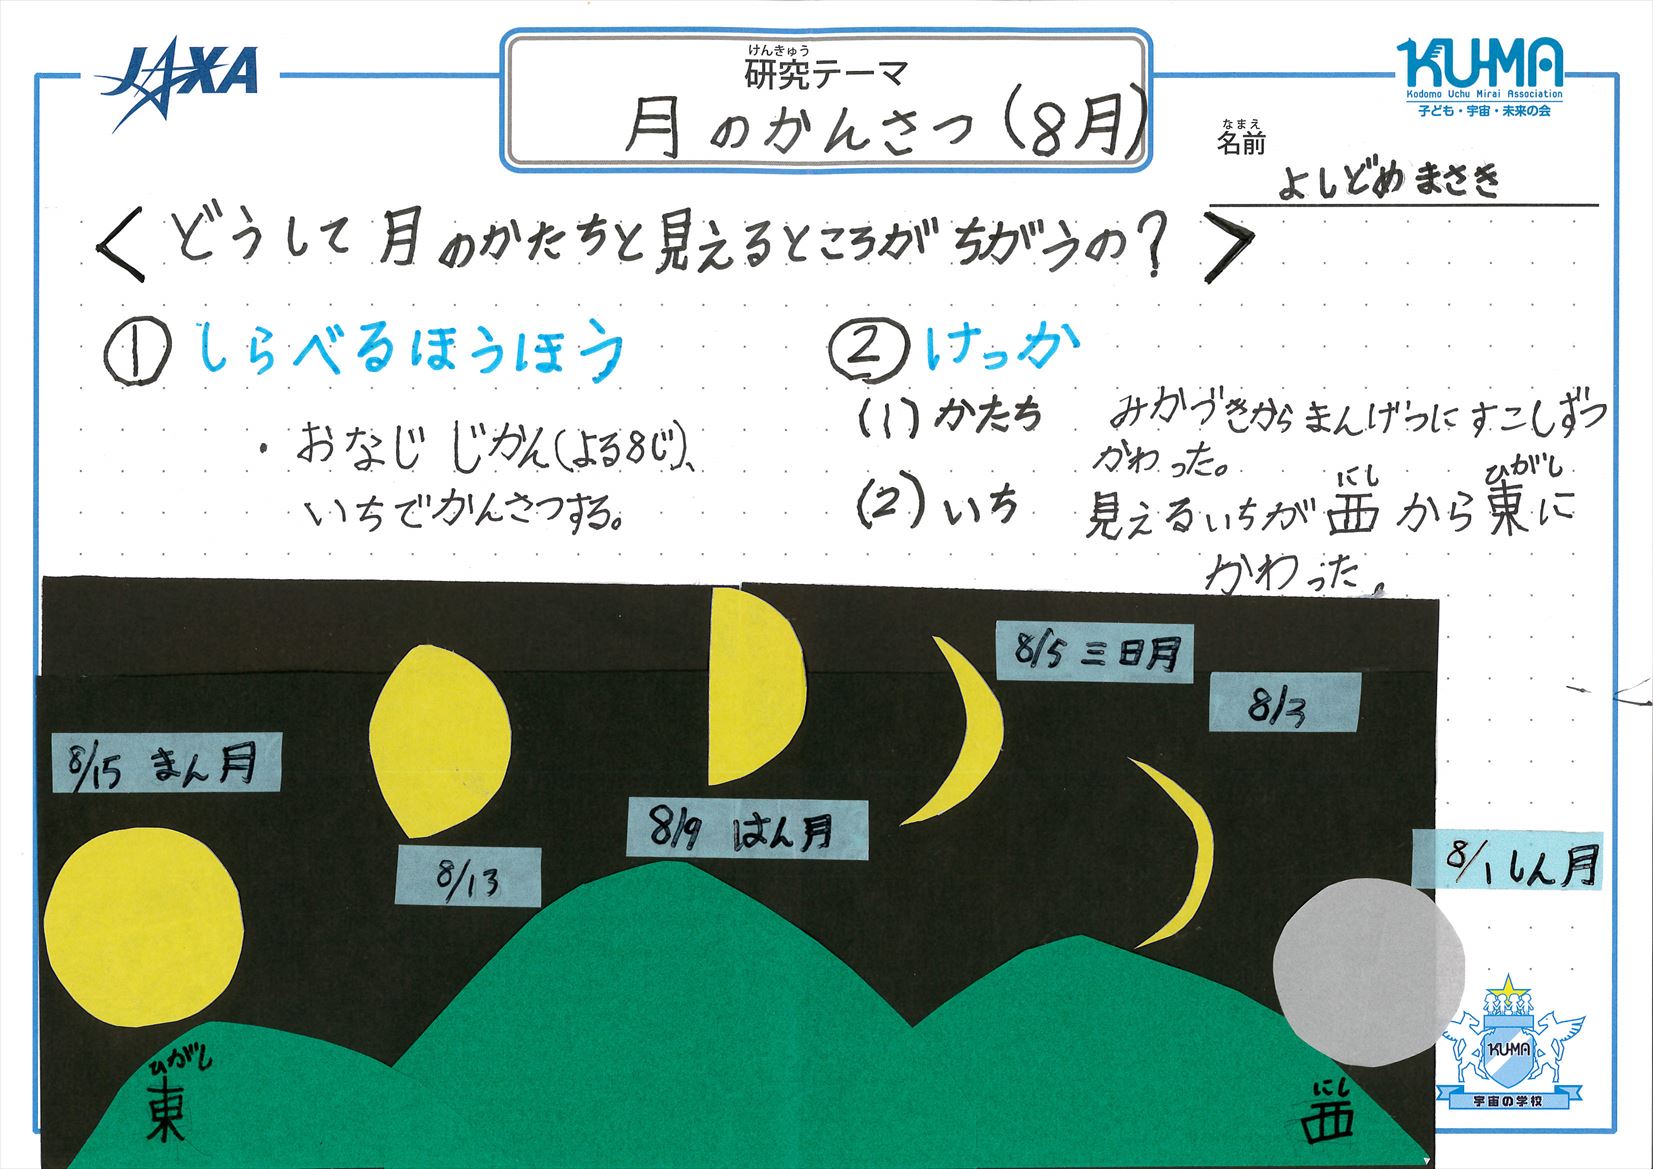 JAXA
けんきゅう
研究テーマ
月のかんさつ(8月)
KU-MA
Kodomo Uchu Mirai Association
子ども・宇宙・未来の会
なまえ
名前
よしどめ まさき
<どうして月のかたちと見えるところがちがうの?>
① しらべるほうほう
・おなじ じかん(よる8じ)、
いちでかんさつする。
② けっか
(1) かたち みかづきからまんげつにすこしずつ
かわった。
にし ひがし
(2) いち 見えるいちが西から東に
かわった。
8/5 三日月
8/3
8/15 まん月
8/9 はん月
8/13
8/1 しん月
ひがし
東
にし
西
KU-MA
宇宙の学校